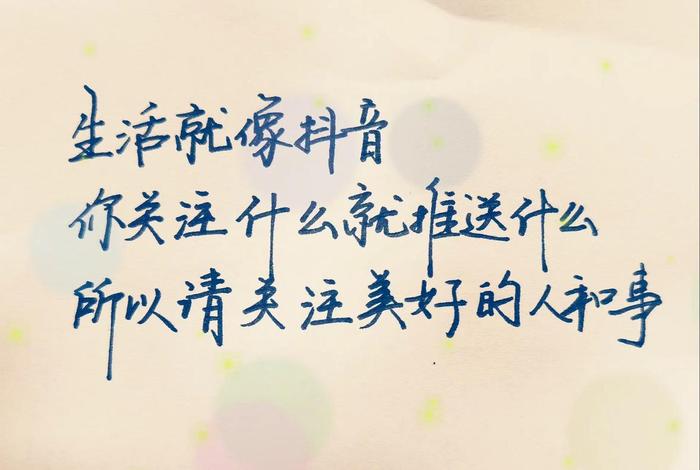 生活就像抖音
你关注什么就推送什么
所以请关注美好的人和事